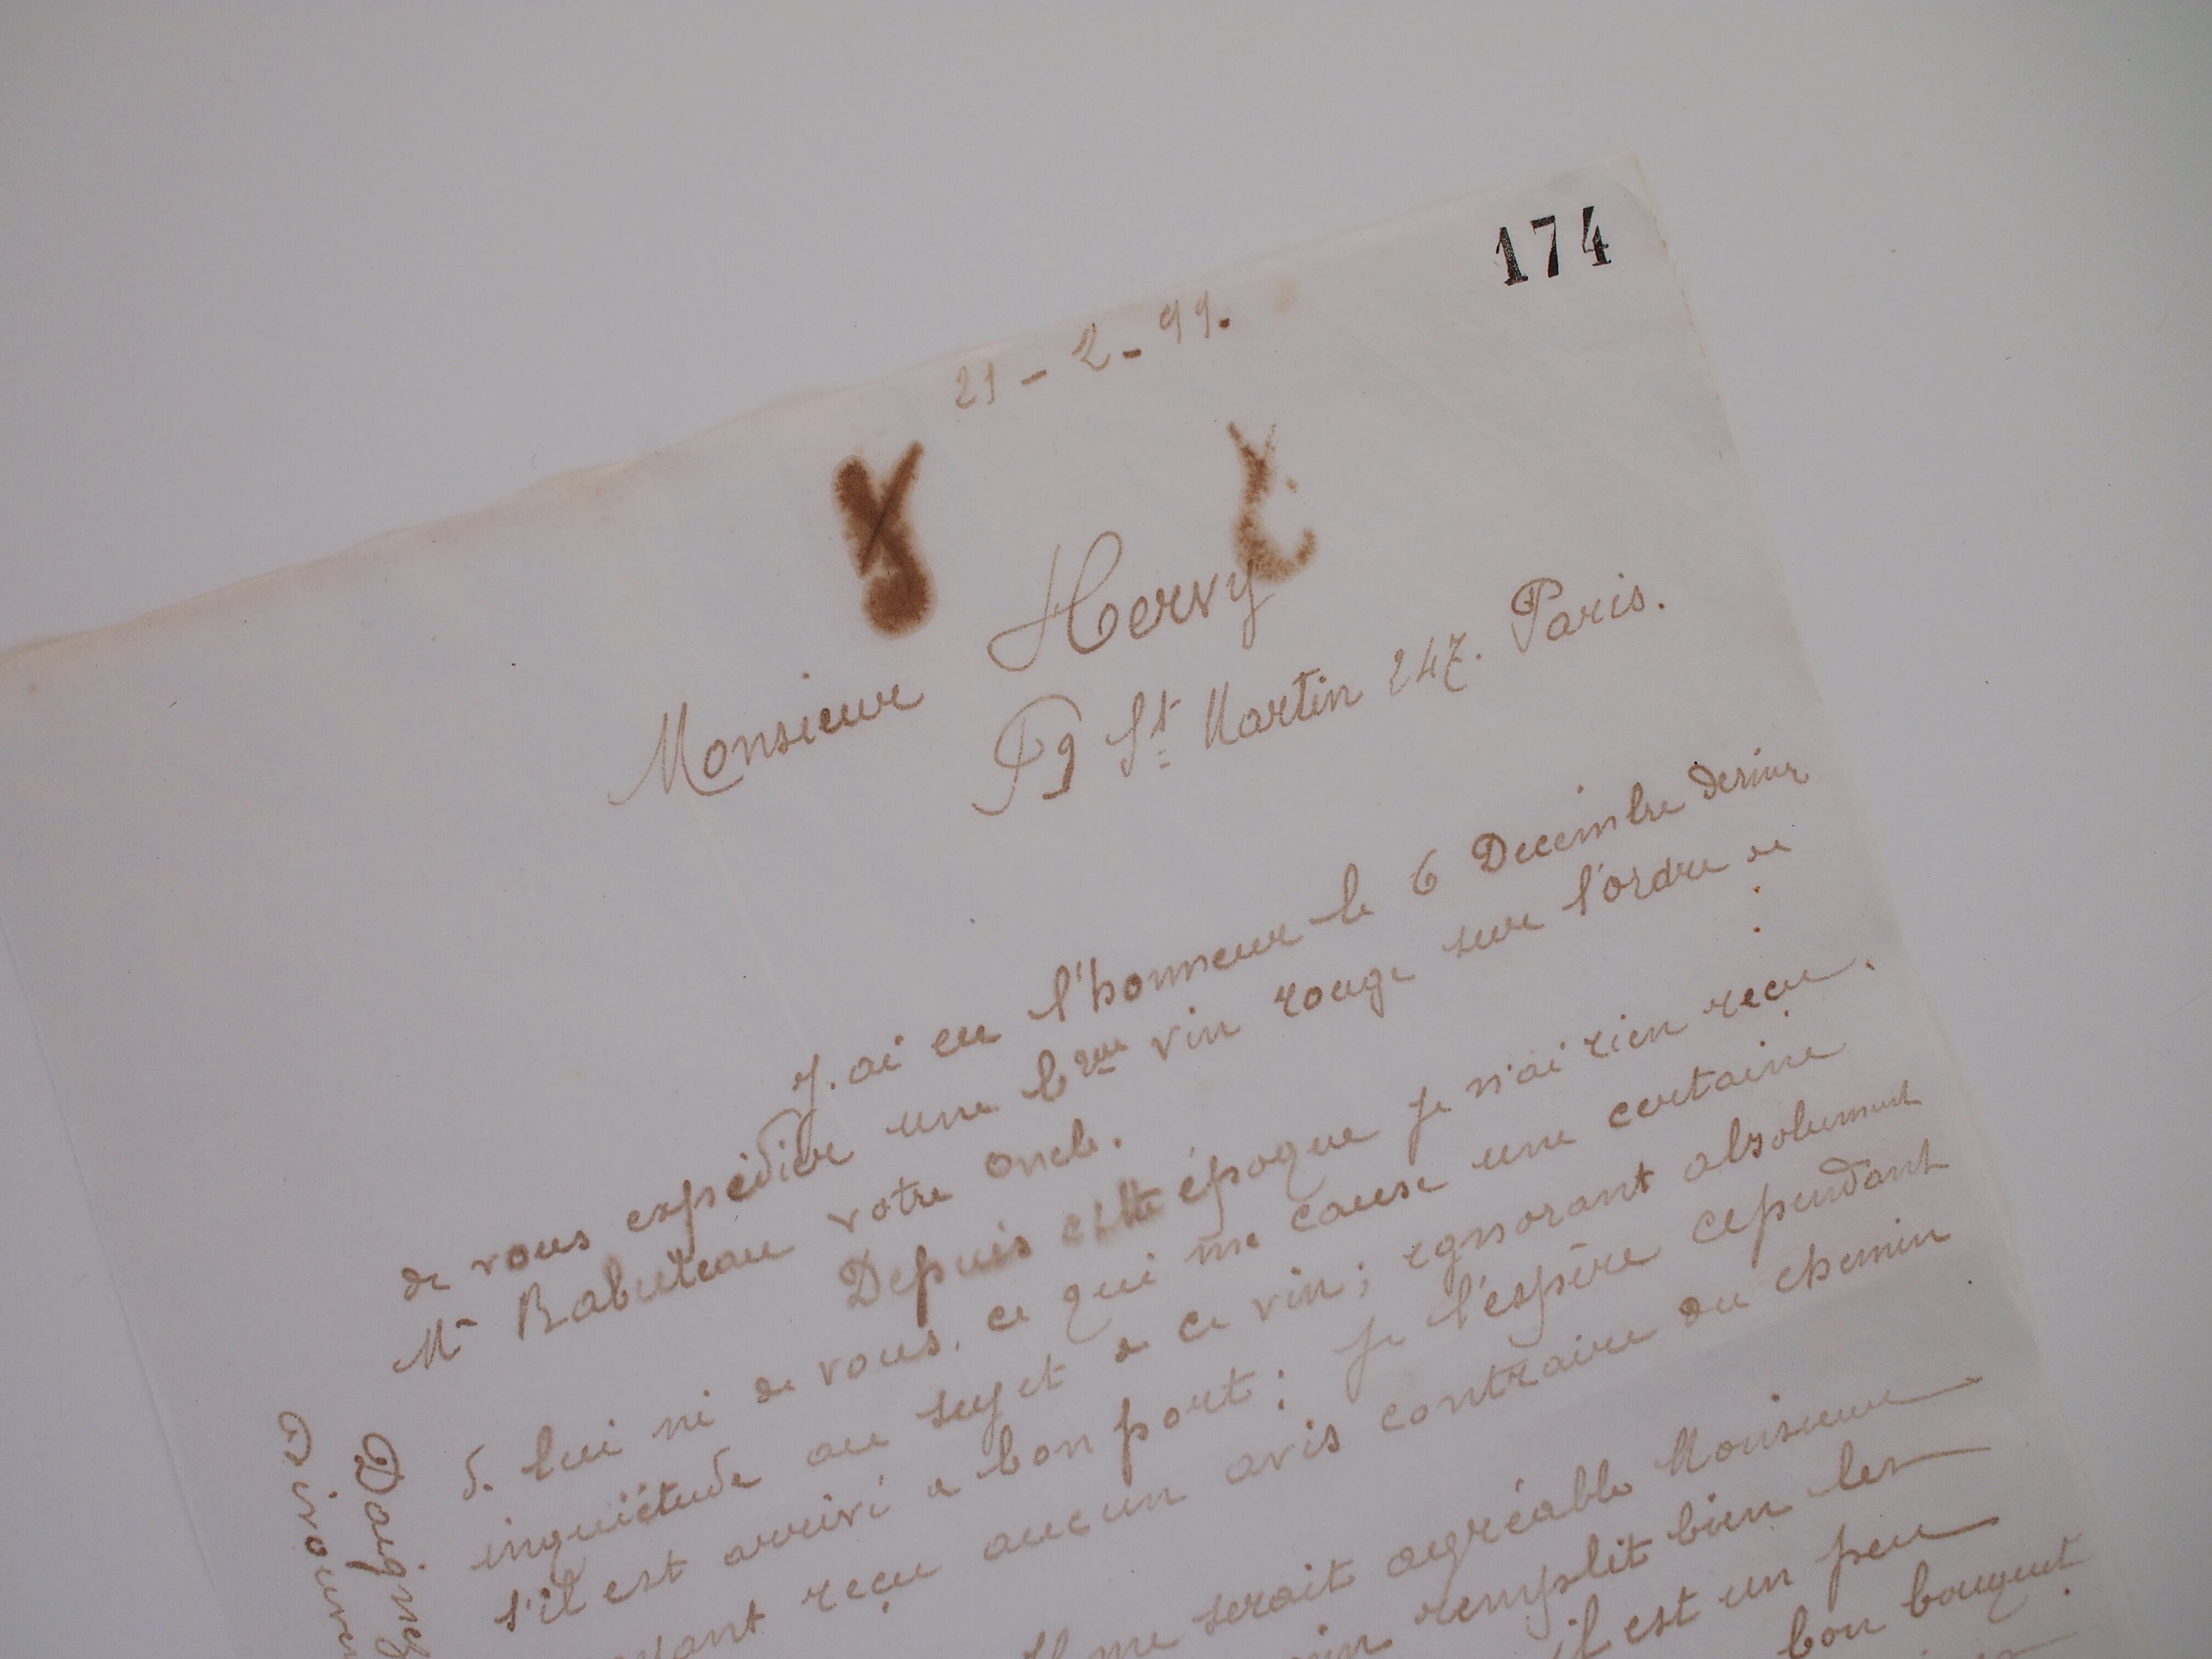 174
21 - 2 - 99.
Monsieur Hervy
Fg St Martin 247. Paris.
J'ai eu l'honneur le 6 Decembre dernier
de vous expédier une bque vin rouge sur l'ordre de
Mr Rabuteau votre oncle.
Depuis cette époque je n'ai rien reçu
de lui ni de vous, ce qui me cause une certaine
inquiétude au sujet de ce vin; ignorant absolument
s'il est arrivé a bon port; je l'espère cependant
reçu aucun avis contraire du chemin
Il me serait agréable Monsieur
remplit bien les
il est un peu
bon bouquet